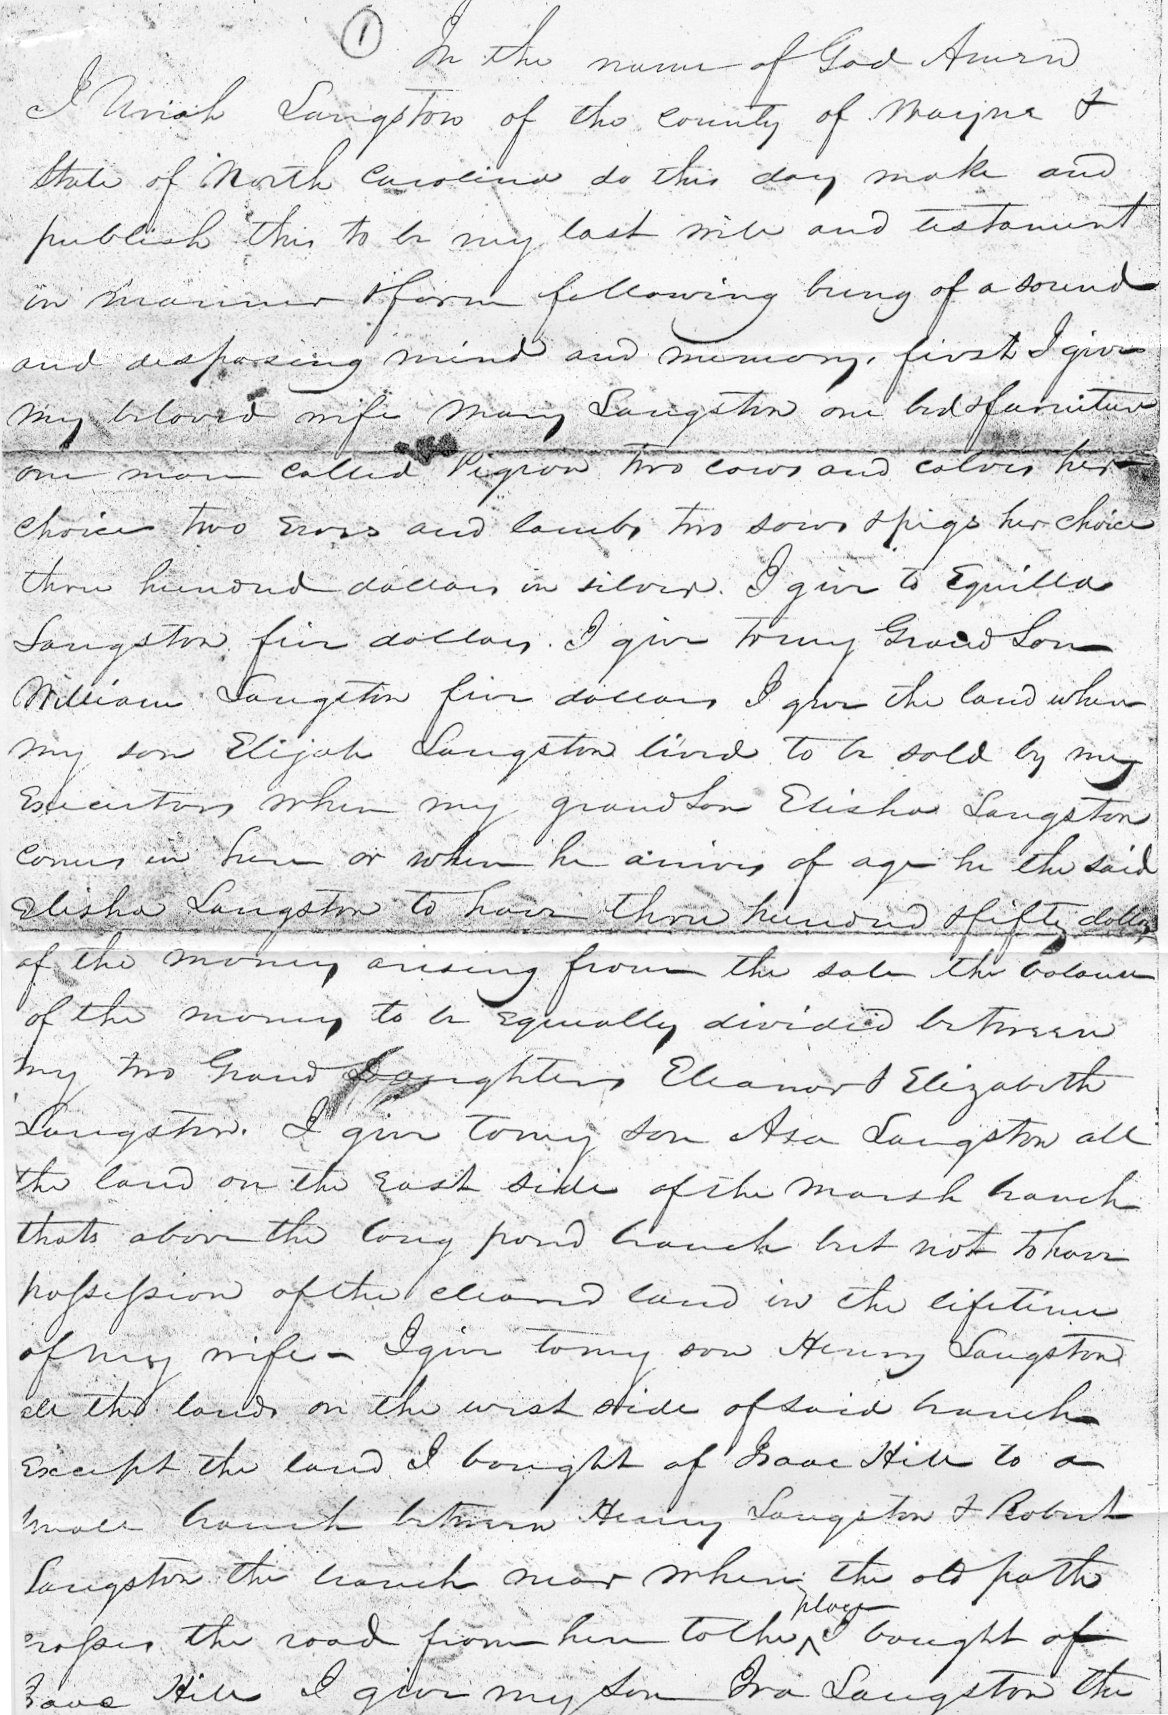 1
In the name of God Amen
I Uriah Langston of the county of Wayne &
State of North Carolina do this day make and
publish this to be my last will and testament
in manner & form following being of a sound
and disposing mind and memory. first I give
my beloved wife Mary Langston one bed & furniture
one mare called Pigeon two cows and calves her
choice two Ewes and lambs two sows & pigs her choice
three hundred dollars in silver. I give to Equilla
Langston five dollars. I give to my Grand Son
William Langston five dollars I give the land where
my son Elijah Langston lived to be sold by my
Executors when my grand Son Elisha Langston
comes in here or when he arives of age he the said
Elisha Langston to have three hundred & fifty dollars
of the money arising from the sale the balance
of the money to be Equally divided between
my two Grand Daughters Eleanor & Elizabeth
Langston. I give to my son Asa Langston all
the land on the East side of the Marsh branch
thats above the long pond branch but not to have
possession of the cleared land in the lifetime
of my wife – I give to my son Henry Langston
all the lands on the west side of said branch
Except the land I bought of Isaac Hill to a
small branch between Henry Langston & Robert
Langston the branch near where the old path
crosses the road from here to the place I bought of
Isaac Hill I give my Son Ira Langston the